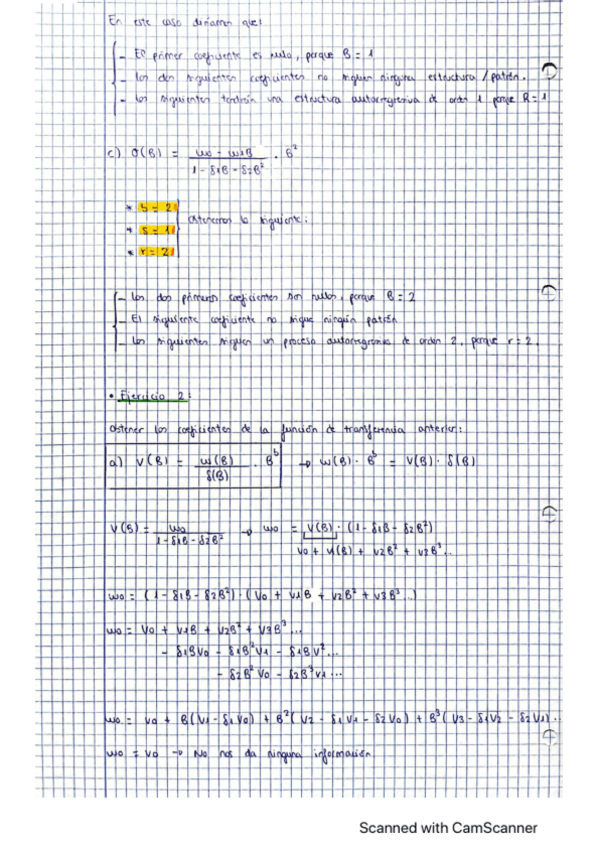 En este caso diríamos que:
- El primer coeficiente es nulo, porque B = 1
- Los dos siguientes coeficientes no siguen ninguna estructura / patrón.
- Los siguientes tendrán una estructura autorregresiva de orden 1 porque R = 1
c) V(B) = (ω0 - ω1B) / (1 - δ1B - δ2B²) · B²
* b = 2
* s = 1 } Obtenemos lo siguiente:
* r = 2
- Los dos primeros coeficientes son nulos, porque B = 2
- El siguiente coeficiente no sigue ningún patrón
- Los siguientes siguen un proceso autorregresivo de orden 2, porque r = 2.
• Ejercicio 2:
Obtener los coeficientes de la función de transferencia anterior:
a) V(B) = ω(B) / δ(B) · B^b → ω(B) · B^b = V(B) · δ(B)
V(B) = ω0 / (1 - δ1B - δ2B²) → ω0 = V(B) · (1 - δ1B - δ2B²)
V0 + V1(B) + V2B² + V3B³...
ω0 = (1 - δ1B - δ2B²) · (V0 + V1B + V2B² + V3B³...)
ω0 = V0 + V1B + V2B² + V3B³...
- δ1BV0 - δ1B²V1 - δ1BV²...
- δ2B²V0 - δ2B³V1...
ω0 = V0 + B(V1 - δ1V0) + B²(V2 - δ1V1 - δ2V0) + B³(V3 - δ1V2 - δ2V1)...
ω0 = V0 → No nos da ninguna información
Scanned with CamScanner